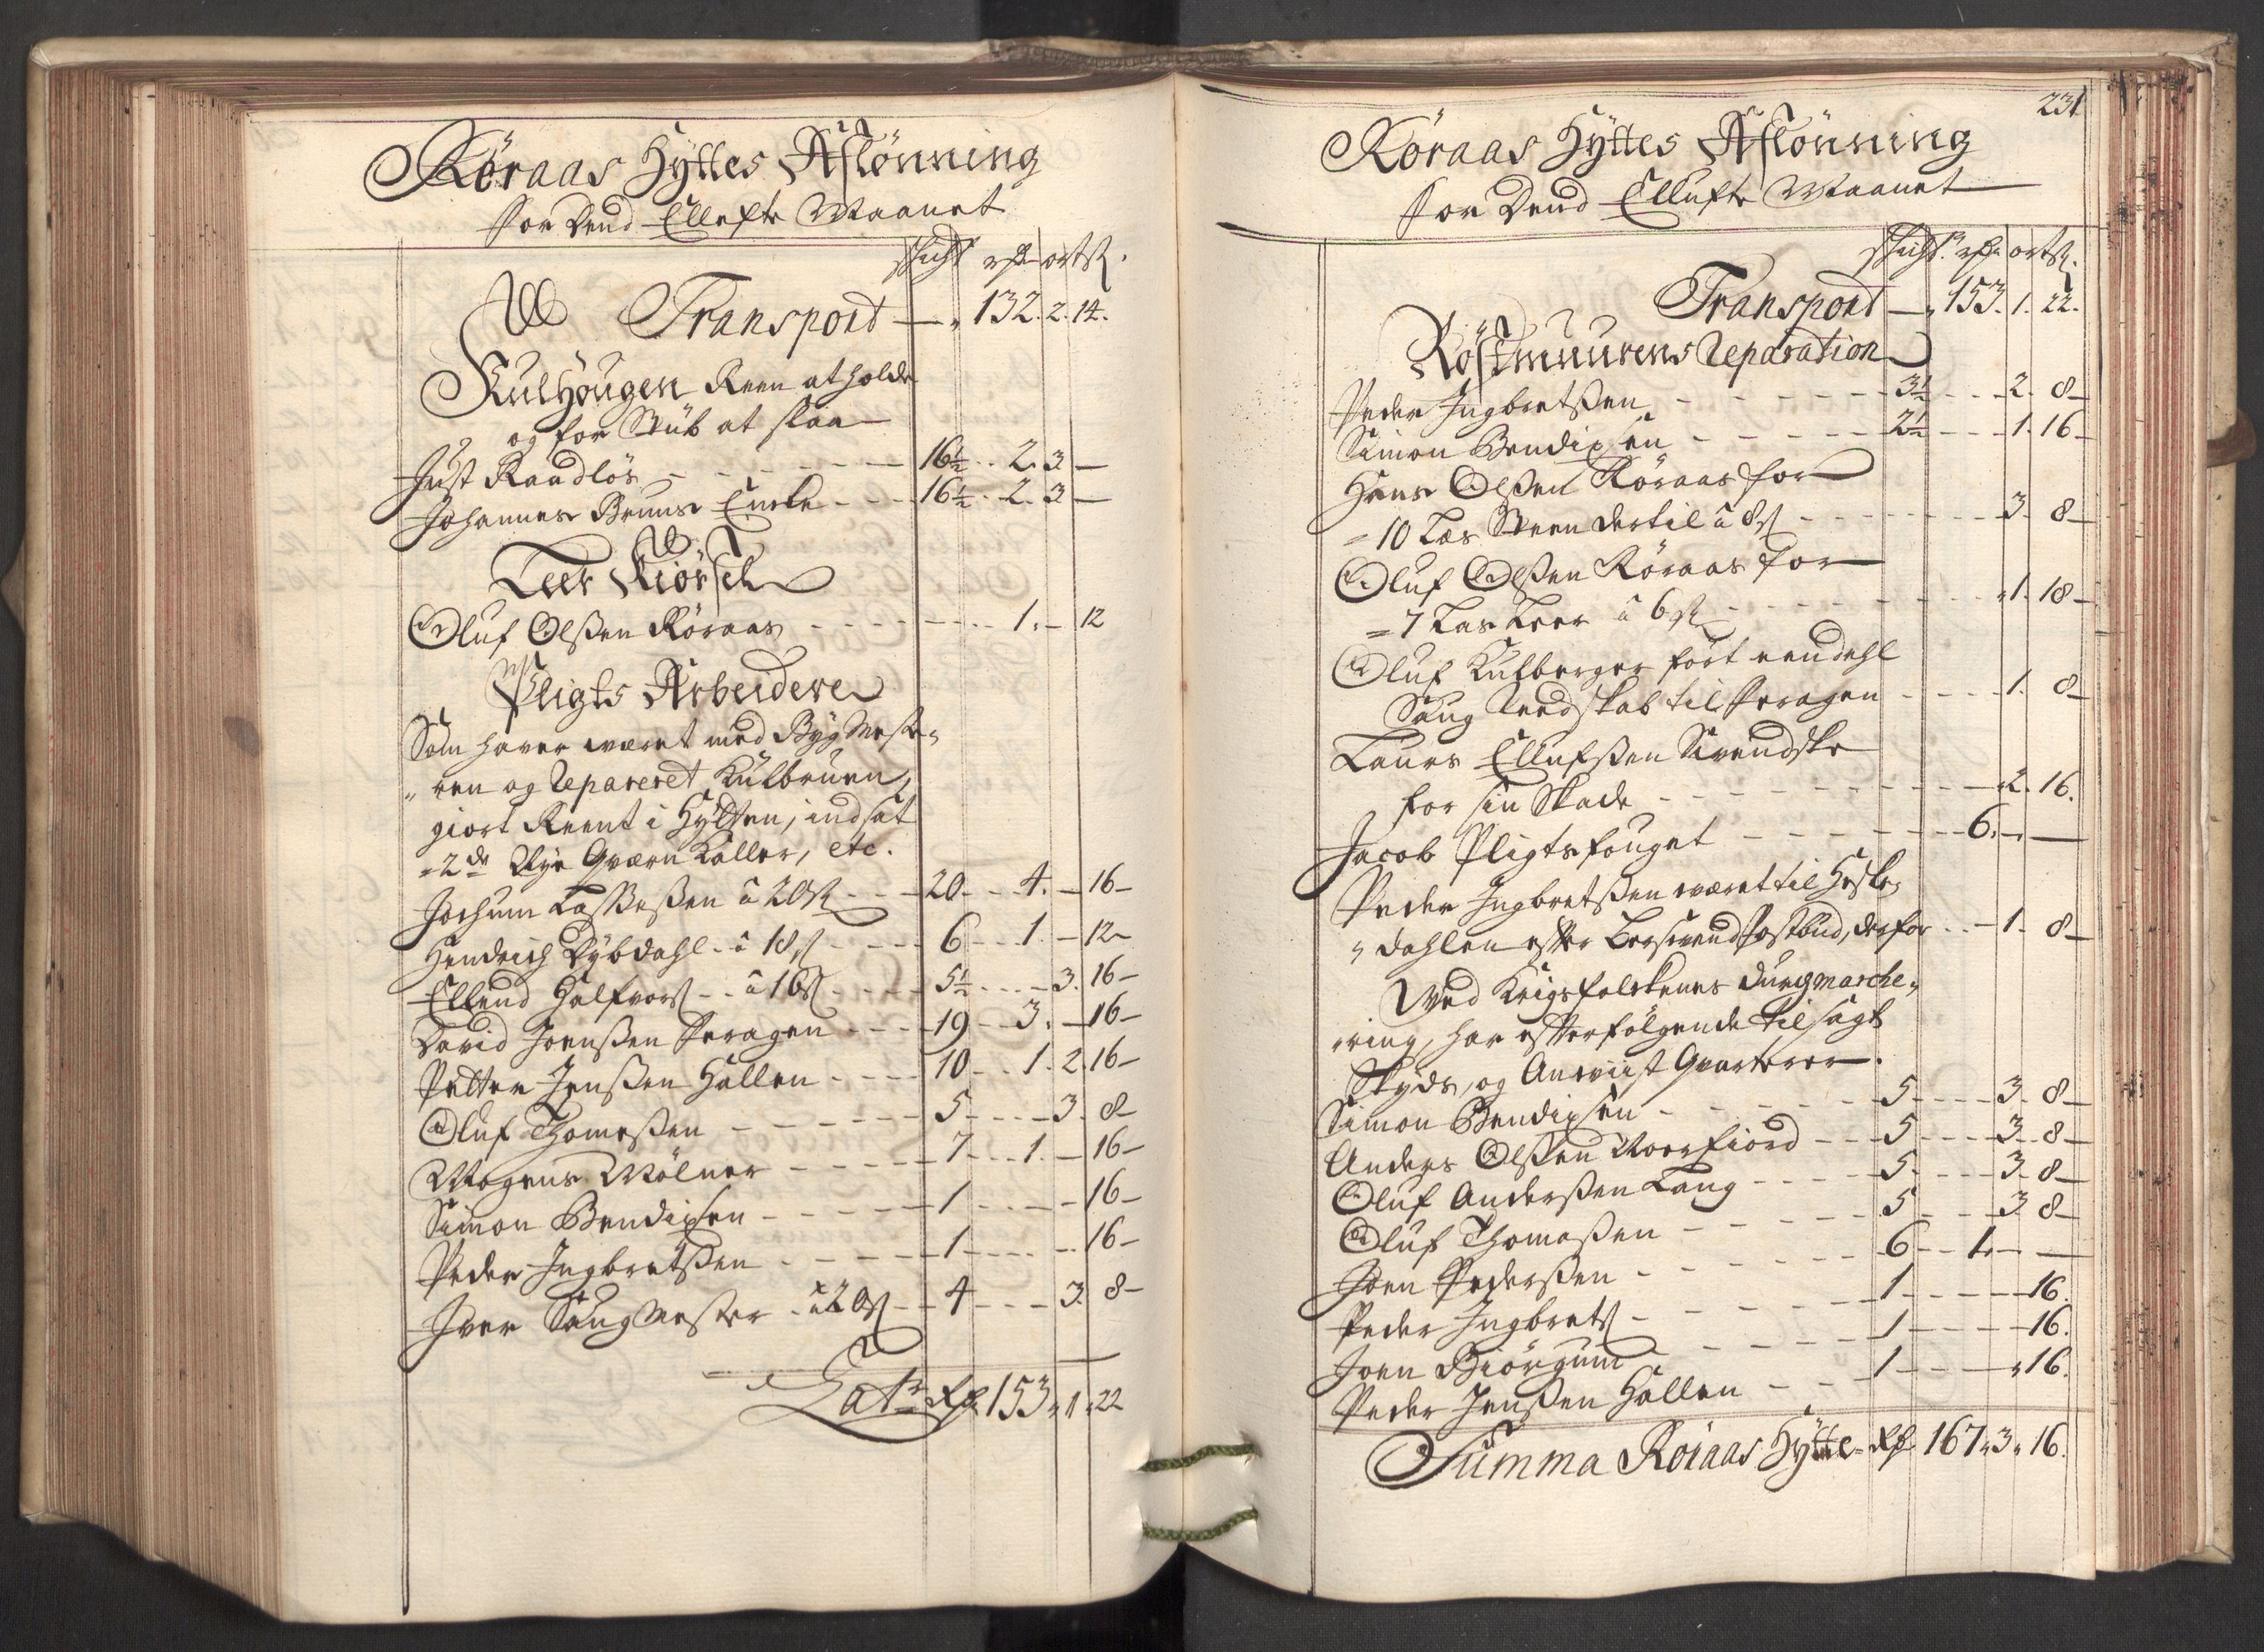 Röraas Hyttes Aflönning
for Dend Ellefte Maanet
Schicht rdr ort ß.
Transport — „ 132. 2. 14.
Kulhougen Reen at holde
og for Stüb at slaa
Just Raadlös - - - 16½ - 2. 3 —
Johannes Bruns Encke - - - 16½ - 2. 3 —
Leer Kiörsel
Oluf Olßen Röraas - - - 1. — 12
Pligts Arbeidere
Som haver wæret med Byg Meste„
„ren og Repareret Kulbruen,
giort Reent i Hytten, indsat
=2de Nye Qværn Kaller, etc.
Jochum Laßeßen â 20ß - - 20 - - 4. — 16 —
Hendrich Dybdahl - â 18ß - - 6 - - 1. — 12 —
Ellend Halfvorß - - â 16ß - - 5½ - - - 3. 16 —
David Joenßen Feragen - - - 19 - - 3. — 16 —
Petter Jenßen Hallen - - - 10 - - 1. 2. 16 —
Oluf Thomeßen - - - 5 - - - 3. 8 —
Mogens Mölner - - - 7 - - 1. — 16 —
Simon Bendixsen - - - 1 - - - 16 —
Peder Ingbretßen - - - 1 - - - 16 —
Iver Saugmester - â 20ß - - 4 - - - 3. 8 —
Latr Rdr 153 „ 1 „ 22
231
Röraas Hyttes Aflönning
for Dend Ellufte Maanet
Schicht. rdr ort ß.
Transport — „ 153. 1. 22.
Röstmuurens Reparation
Peder Ingbretßen - - - 3½ - - - 2. 8 —
Simon Bendixsen - - - 2½ - - - 1. 16 —
Hans Olßen Röraas for
=10 Læs Steen dertil â 8ß - - - 3. 8 —
Oluf Olßen Röraas for
=7 Læs Leer â 6ß - - - 1. 18 —
Oluf Kulberger ført eendehl
Saug Reedskab til Feragen - - - 1. 8 —
Laurs Ellufßen Svendske
for sin Skade - - - 2. 16.
Jacob Pligtsfouget - - - 6. — —
Peder Ingbretßen wæret til Heste„
„dahlen efter Bersvend Postbud, derfor - - 1. 8 —
Wed Krigsfolckenes Durgmarche„
„ring, har efterfölgende tilsagt
Skyds, og Anviist Qvarterer.
Simon Bendixsen - - - 5 - - - 3. 8 —
Anders Olßen Norfiord - - - 5 - - - 3. 8 —
Oluf Anderßen Lang - - - 5 - - - 3. 8 —
Oluf Thomaßen - - - 5 - - - 3 8 —
Joen Pederßen - - - 6 - - 1. — —
Peder Ingbretß - - - 1 - - - 16.
Joen Biörgum - - - 1 - - - 16.
Peder Jenßen Hallen - - - 1 - - - „ 16.
Summa Röraas Hytte = Rdr 167 „ 3 „ 16.